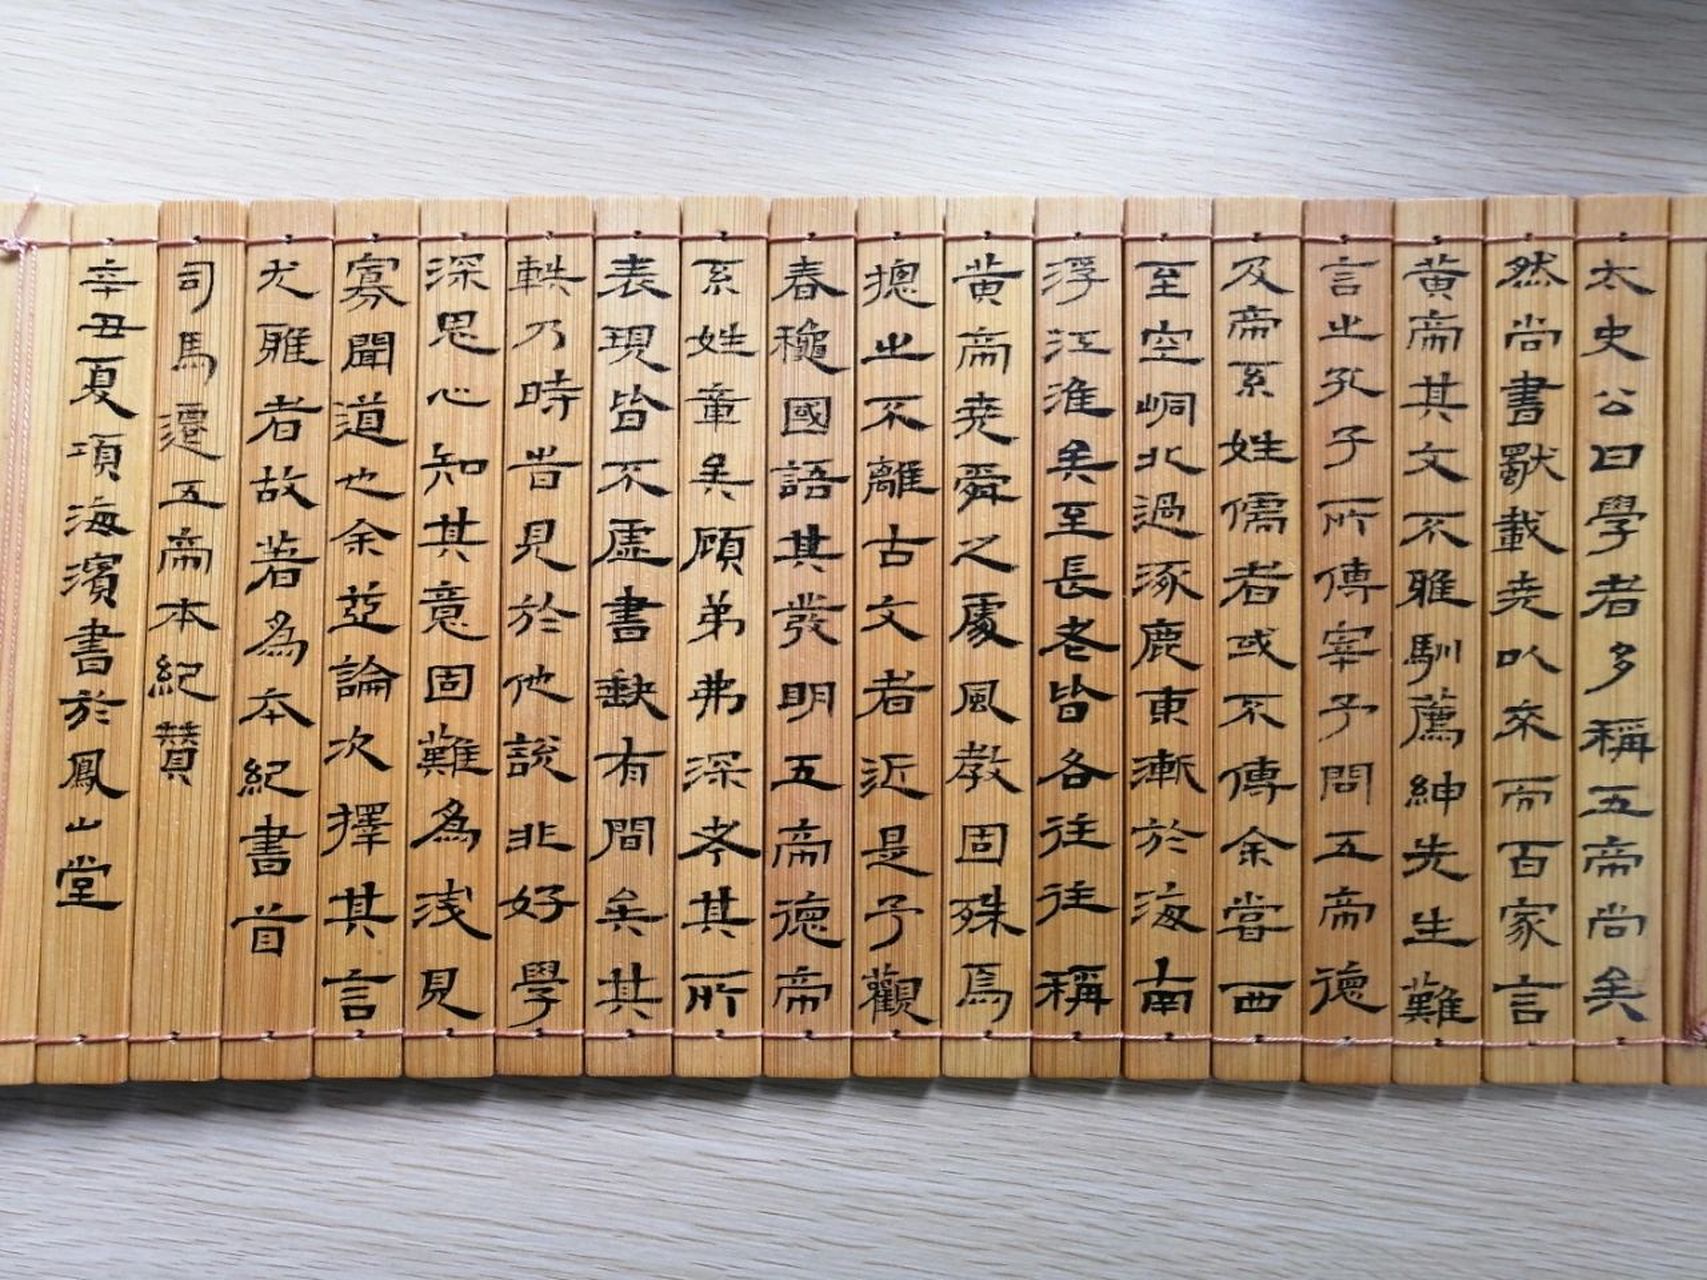 太史公曰學者多稱五帝尚矣
然尚書獨載堯以來而百家言
黃帝其文不雅馴薦紳先生難
言之孔子所傳宰予問五帝德
及帝系姓儒者或不傳余嘗西
至空峒北過涿鹿東漸於海南
浮江淮矣至長老皆各往往稱
黃帝堯舜之處風教固殊焉
摠之不離古文者近是予觀
春秋國語其發明五帝德帝
系姓章矣顧弟弗深考其所
表現皆不虛書缺有間矣其
軼乃時時見於他說非好學
深思心知其意固難為淺見
寡聞道也余並論次擇其言
尤雅者故著為本紀書首
司馬遷五帝本紀贊
辛丑夏項海濱書於鳳山堂